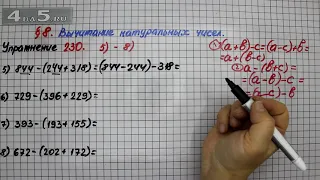 4fasol.ru
§8. Вычитание натуральных чисел.
Упражнение 230. 5) - 8)
5) 844-(244+318)=(844-244)-318=
6) 729-(396+229)=
7) 393-(193+155)=
8) 672-(202+172)=
①(a+b)-c=(a-c)+b=
=a+(b-c)
②a-(b+c)=
=(a-b)-c=
=(a-c)-b